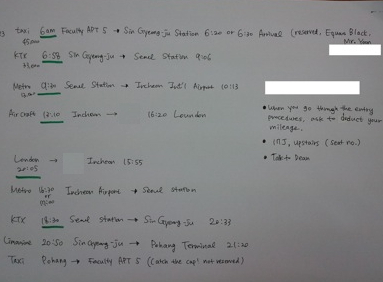 taxi 6am Faculty APT 5 → Sin Gyeong-ju Station 6:20 or 6:30 Arrival (reserved, Equus Black.
KTX 6:58 Sin Gyeong-ju → Seoul Station 9:06
Metro 9:20 Seoul Station → Incheon Int'l Airport 10:13
Aircraft 13:10 Incheon → 16:20 London
• When you go through the entry procedures, ask to deduct your mileage.
upstairs (seat no.)
• Talk to Dean
London 20:05 → Incheon 15:55
Metro 16:30 or Incheon Airport → Seoul station
KTX 18:30 Seoul station → Sin Gyeong-ju 20:33
Limousine 20:50 Sin Gyeong-ju → Pohang Terminal 21:20
Taxi Pohang → Faculty APT 5 (Catch the cap! not reserved)